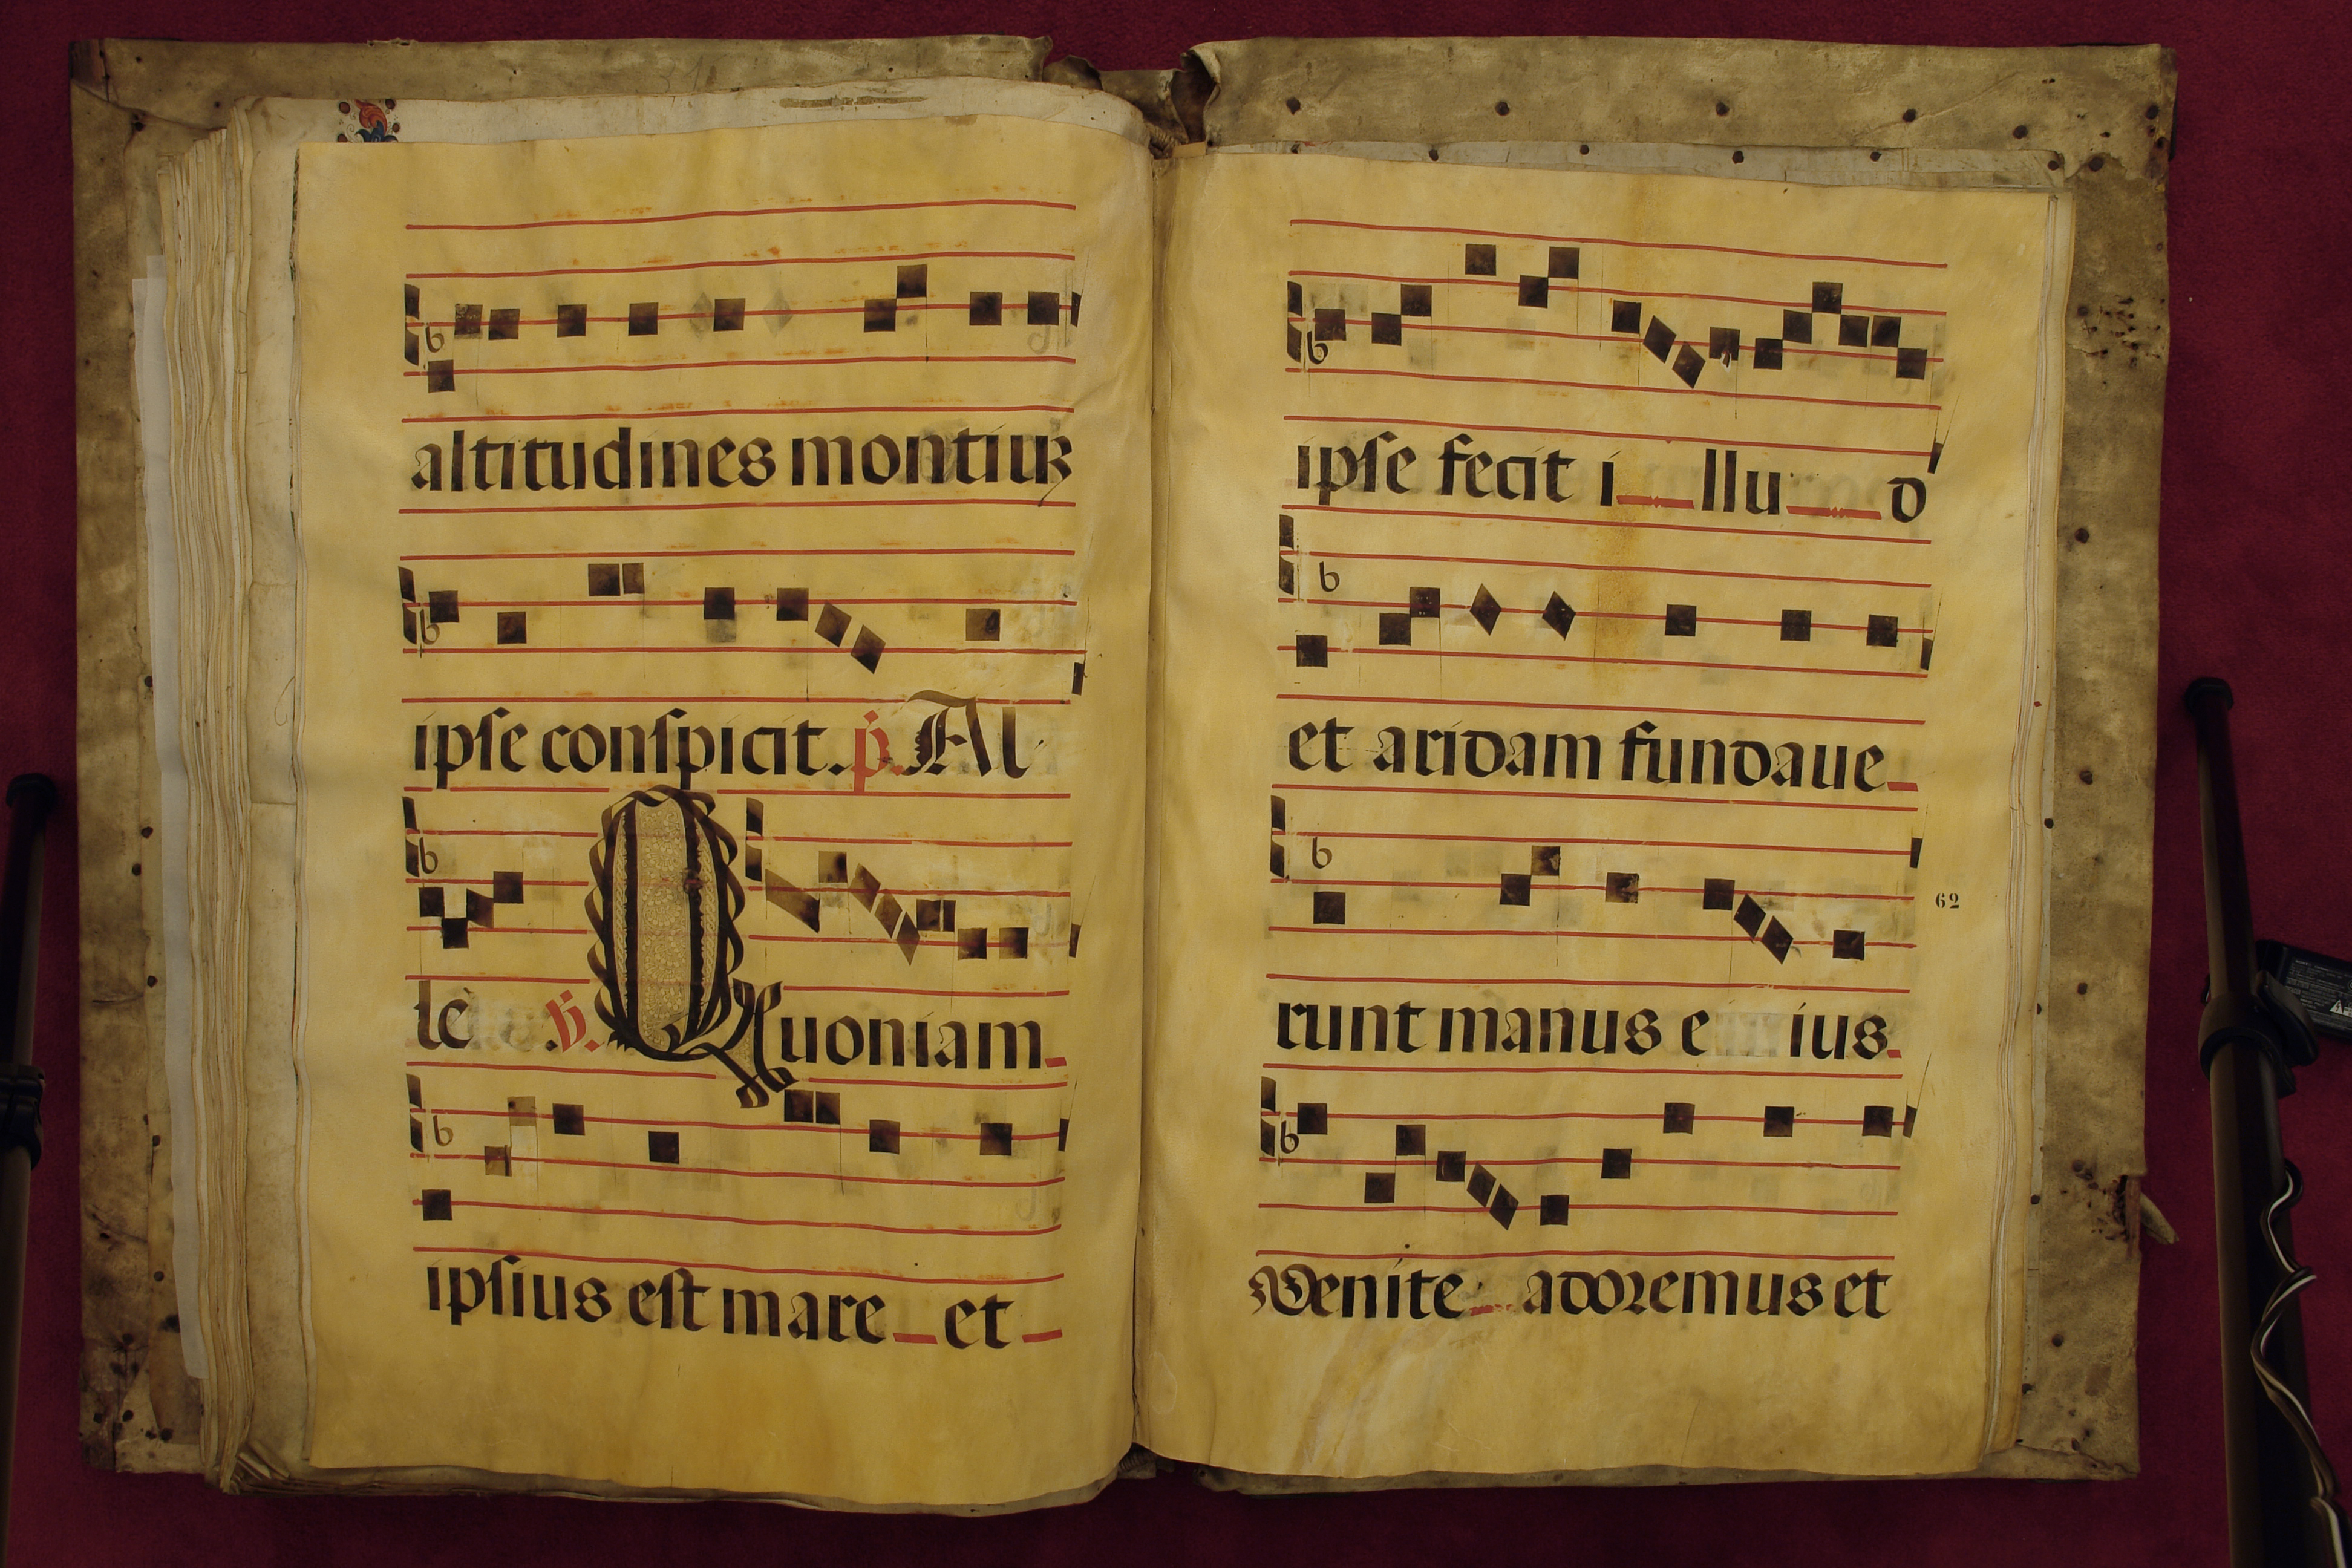 altitudines montiuꝶ
ipſe conſpicit. p. Al
le ꝟ. Quoniam
ipſius eſt mare et
ipſe fecit i llu d
et aridam fundaue
runt manus e ius.
Venite adoremus et
62